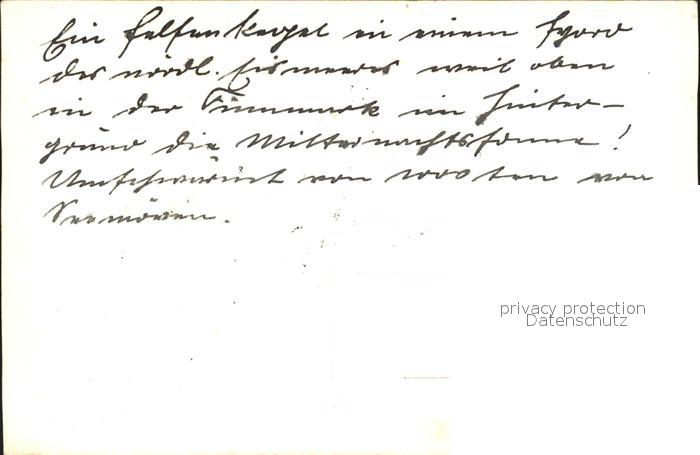 Ein Felsenkegel in einem Fyord
des nördl. Eismeeres weit oben
in der Finnmark im Hinter-
grund die Mitternachtssonne!
Umschwärmt von 1000ten von
Seemöven.
privacy protection
Datenschutz